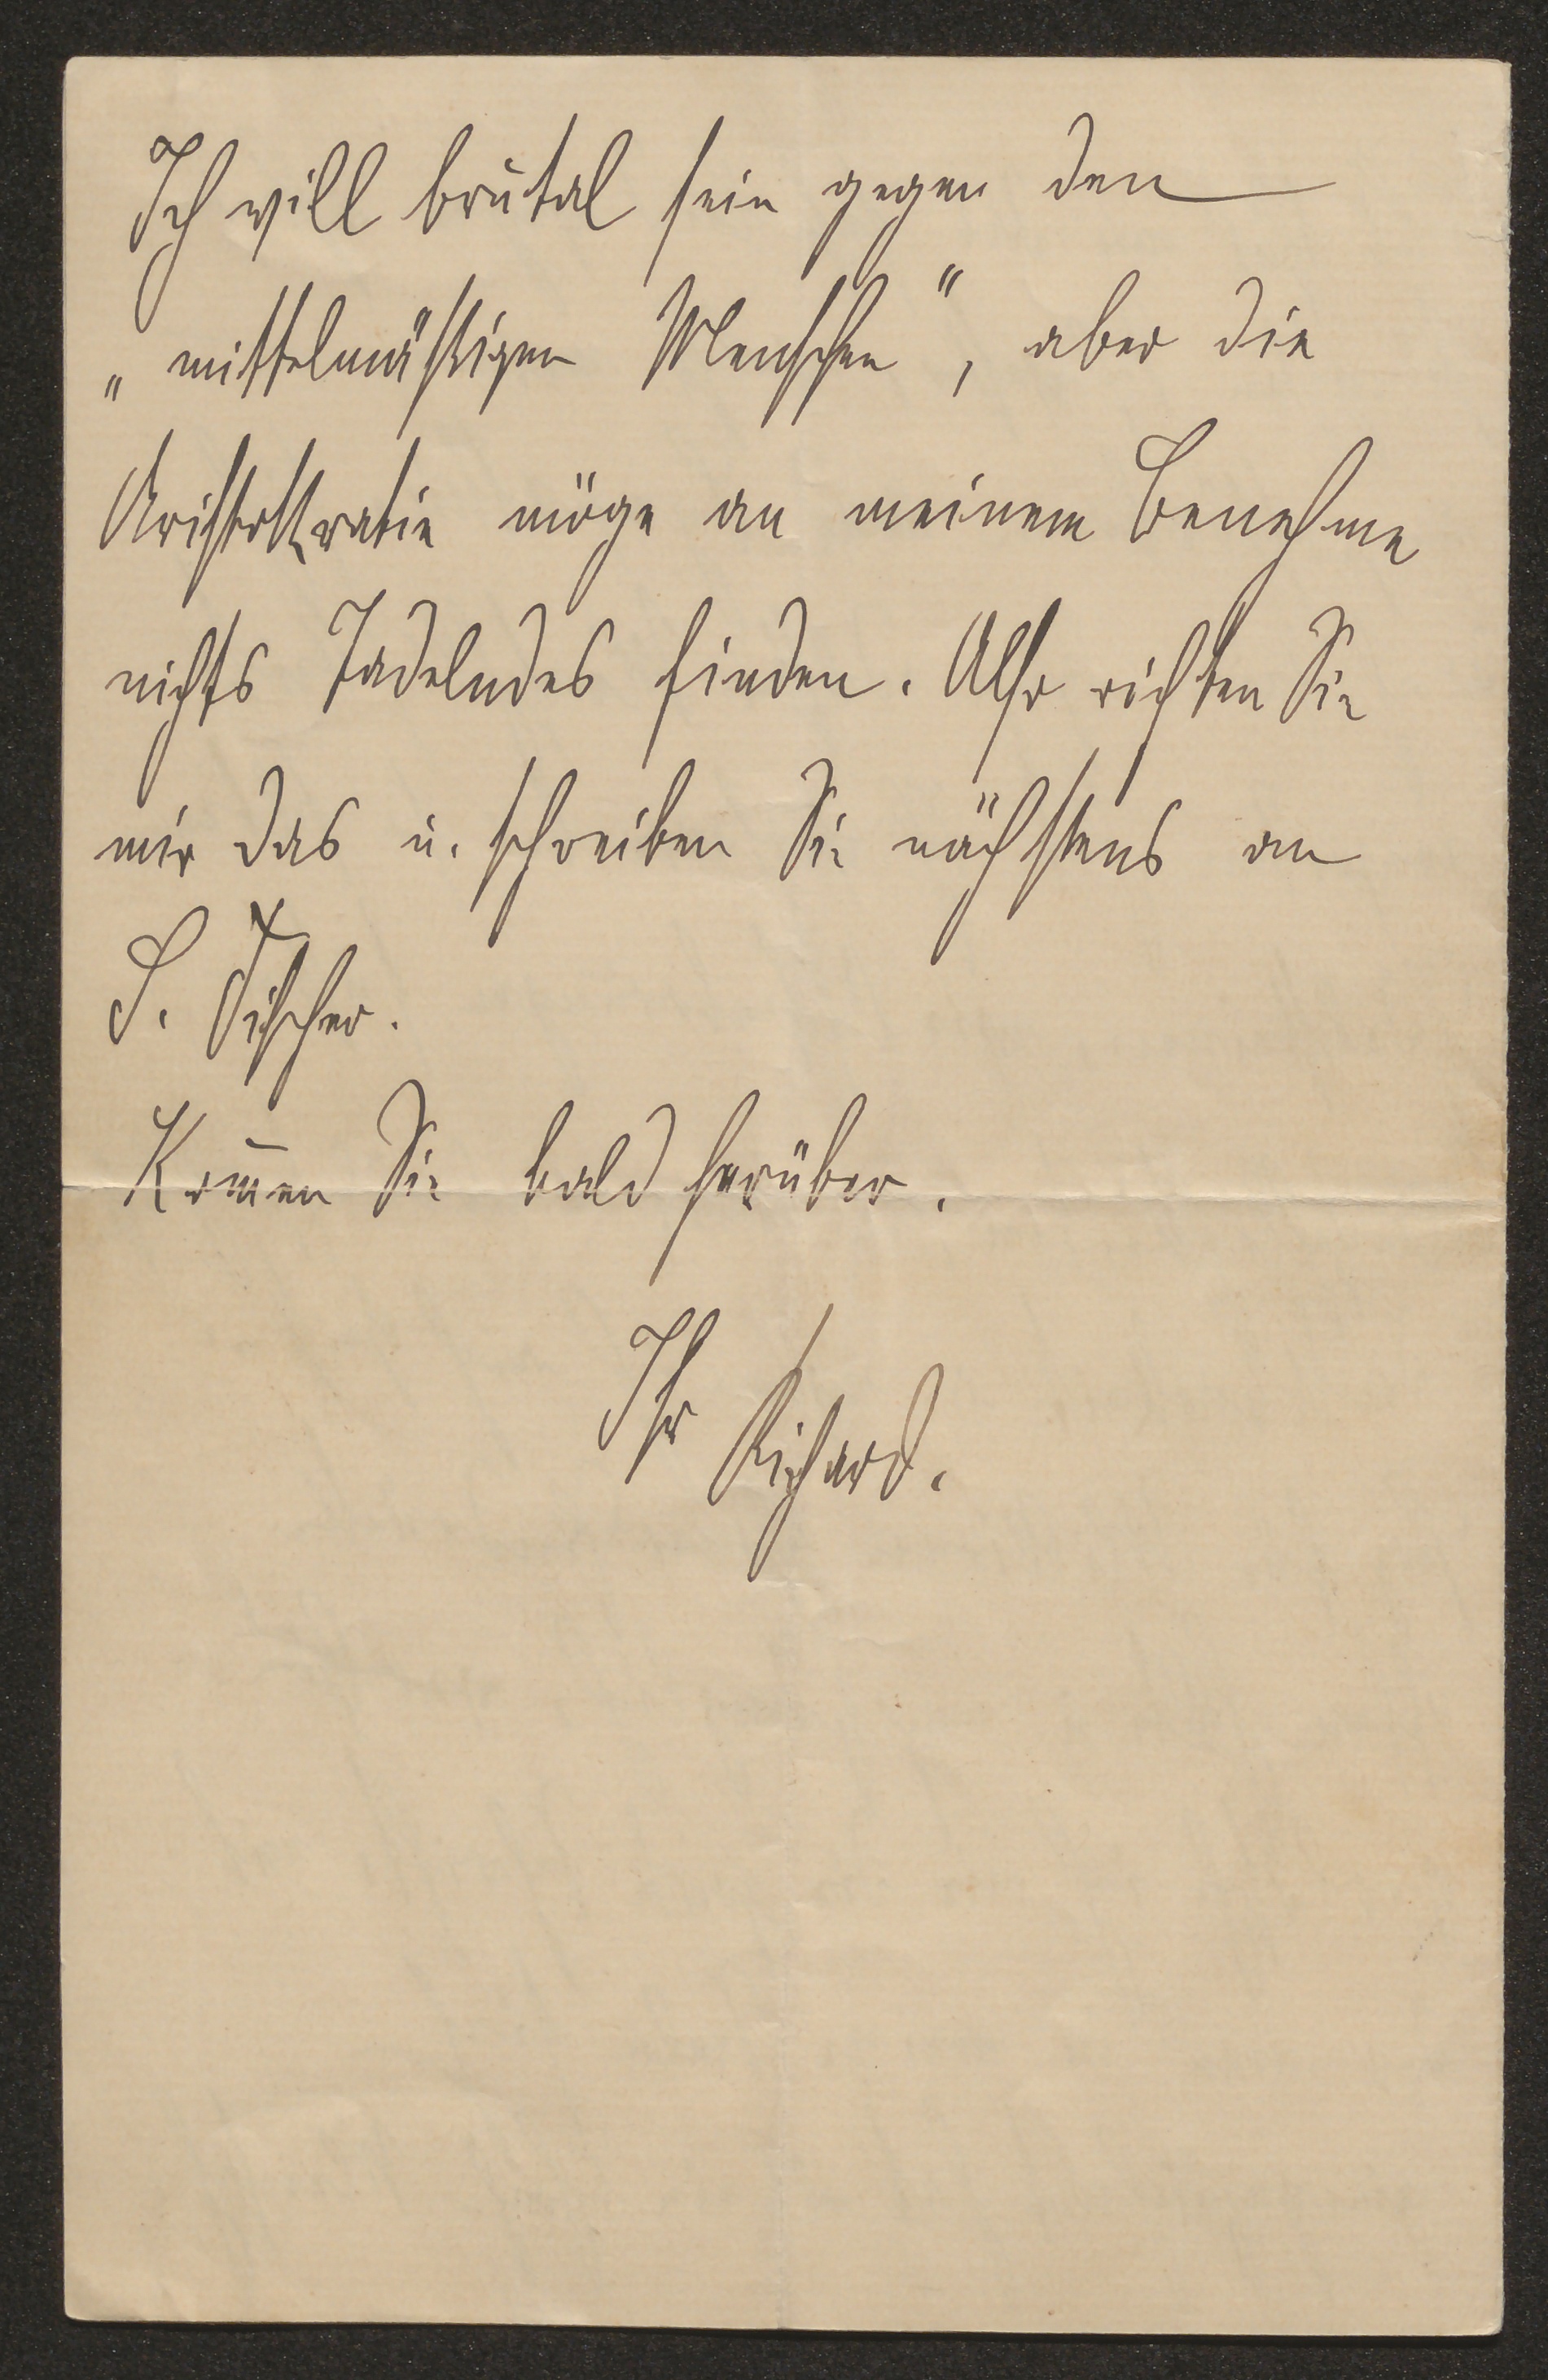 Ich will brutal sein gegen den
„mittelmäßigen Menschen“, aber die
Aristokratie möge an meinem Benehmen
nichts Tadelndes finden. Also richten Sie
mir das u. schreiben Sie nächstens an
S. Fischer.
Kom̄en Sie bald herüber.
Ihr Richard.